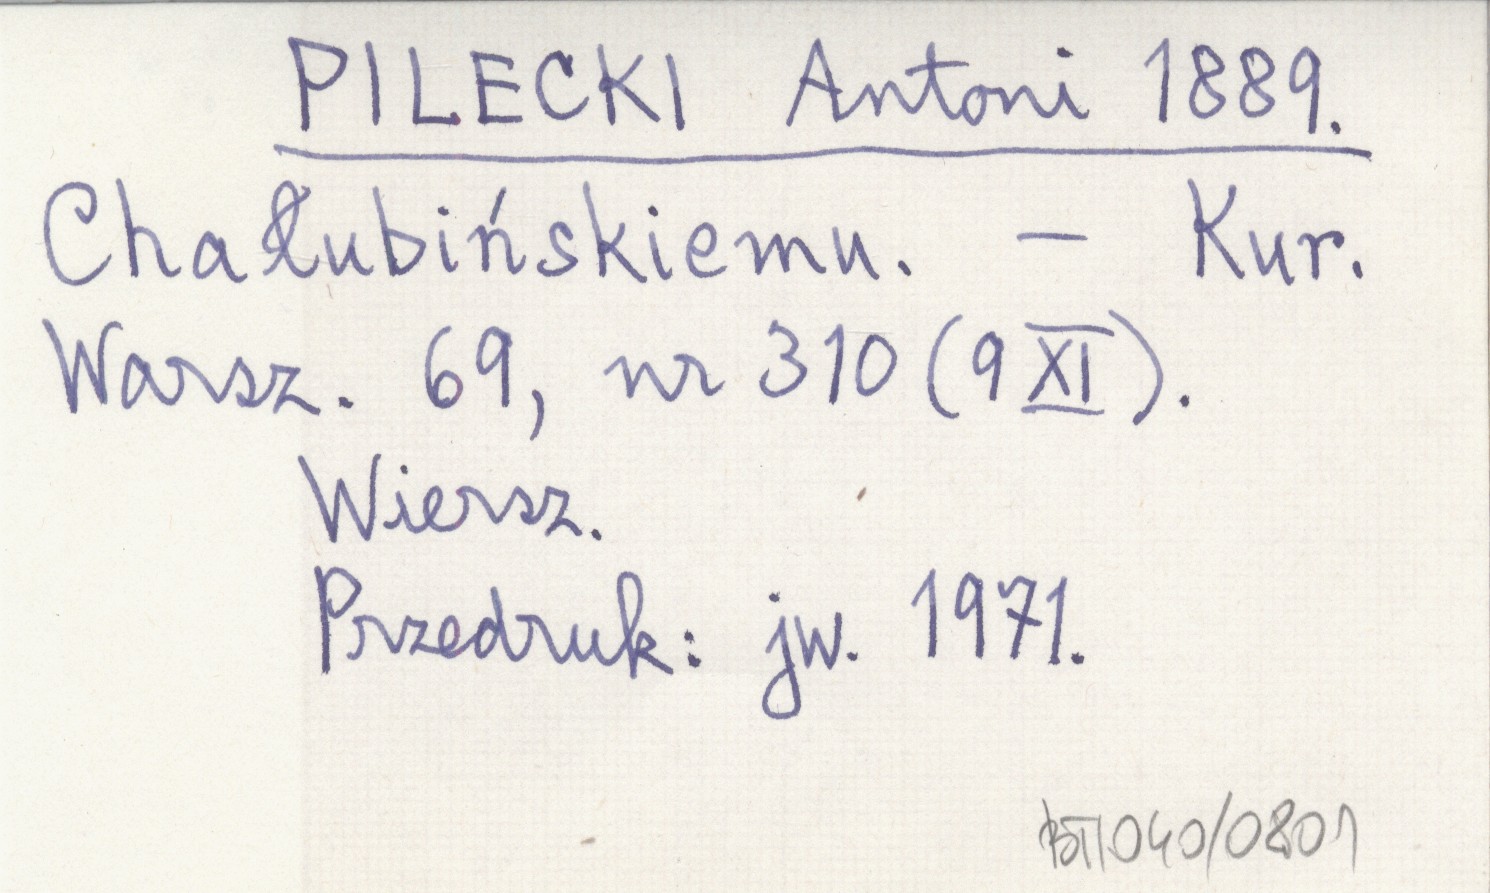 PILECKI Antoni 1889.
Chałubińskiemu. – Kur.
Warsz. 69, nr 310 (9 XI).
Wiersz.
Przedruk: jw. 1971.
BT/040/0801